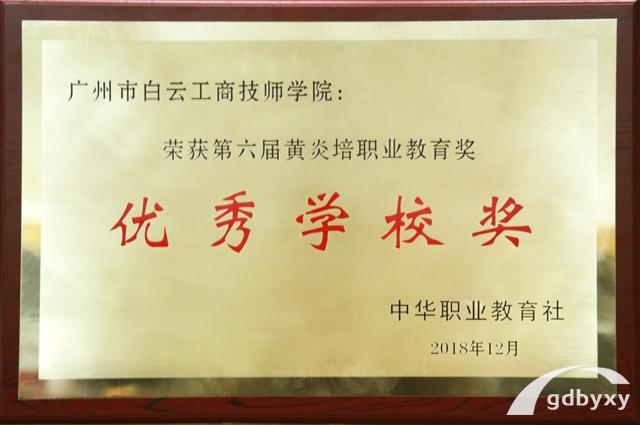 广州市白云工商技师学院：
荣获第六届黄炎培职业教育奖
优秀学校奖
中华职业教育社
2018年12月
gdbyxy